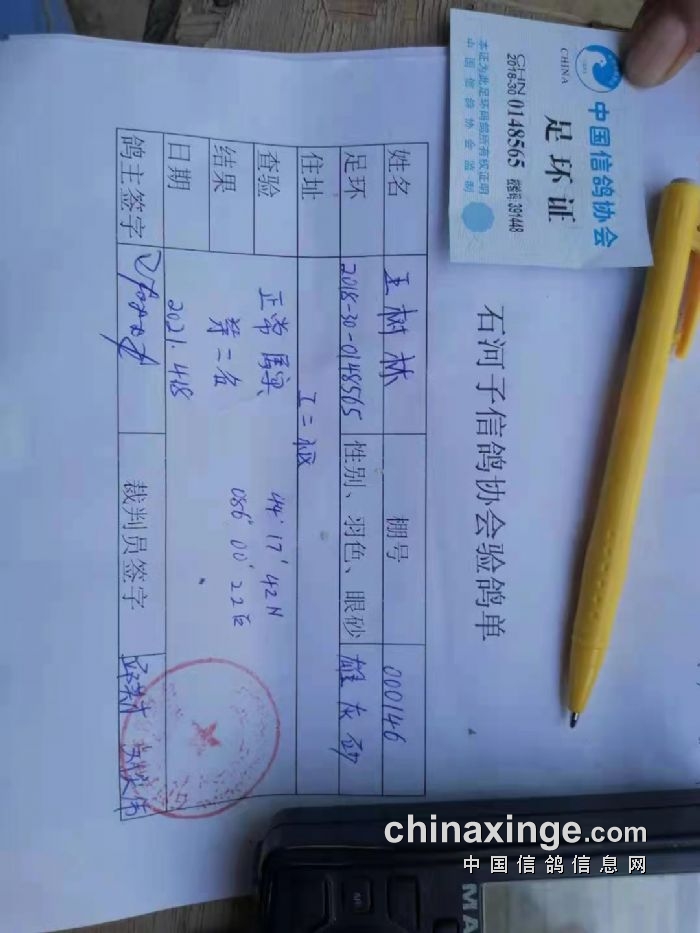 中国信鸽协会
CHINA
足环证
CHN
2018-30 0148565 密码 391448
本证为此足环码鸽所有权证明
中国信鸽协会监制
石河子信鸽协会验鸽单
姓名 王树林 棚号 000146
足环 2018-30-0148565 性别、羽色、眼砂 雄 灰 砂
住址 工二
查验 正常 44° 17' 42N
结果 第二名 086° 00' 22E
日期 2021.4.18
鸽主签字 裁判员签字
chinaxinge.com
中国信鸽信息网
MA